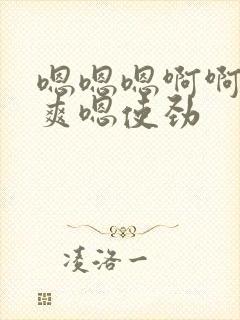 嗯嗯嗯啊啊
爽嗯使劲
凌洛一